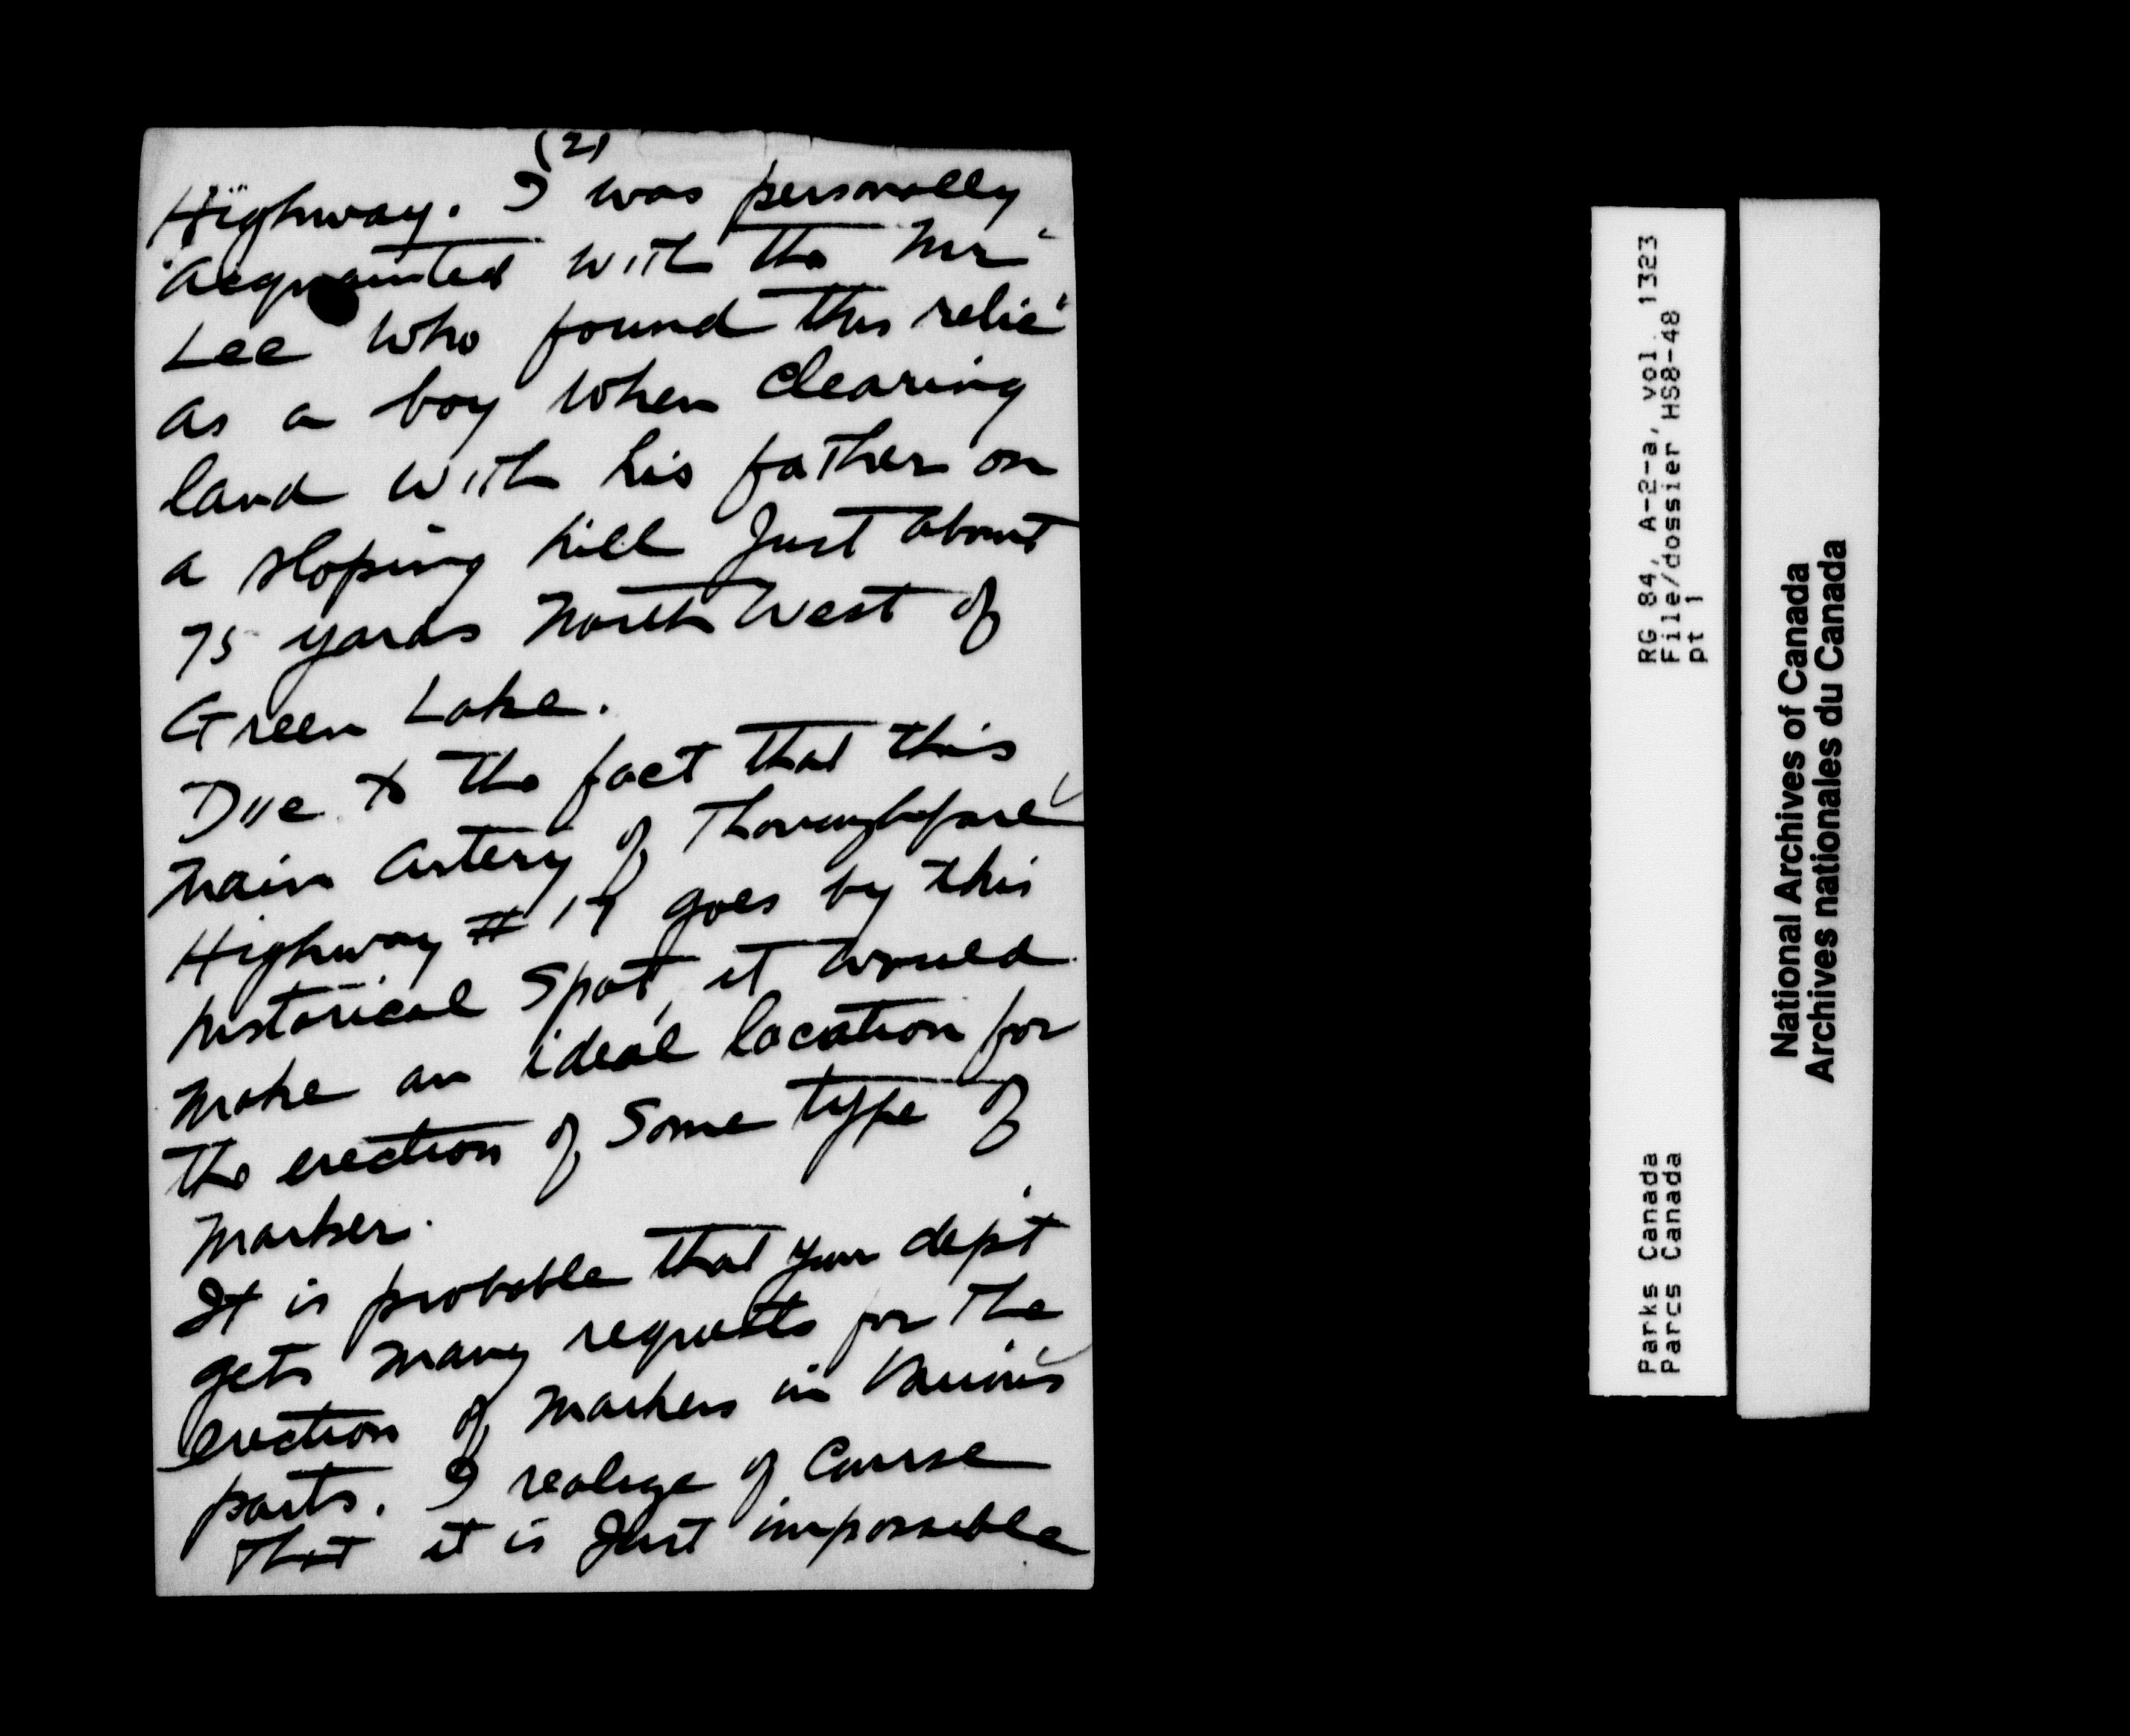 (2)
Highway. I was personally
acquainted with the Mr
Lee who found this relic
as a boy when clearing
land with his father on
a sloping hill Just about
75 yards North West of
Green Lake.
Due to the fact that this
main artery of Thoroughfare
Highway # 17 goes by this
historical spot, it would
make an ideal location for
the erection of some type of
marker.
It is probable that your dep't
gets many requests for the
erection of markers in various
parts. I realize of course
that it is Just impossible
RG 84, A-2-a, vol. 1323
File/dossier HS8-48
pt 1
Parks Canada
Parcs Canada
National Archives of Canada
Archives nationales du Canada